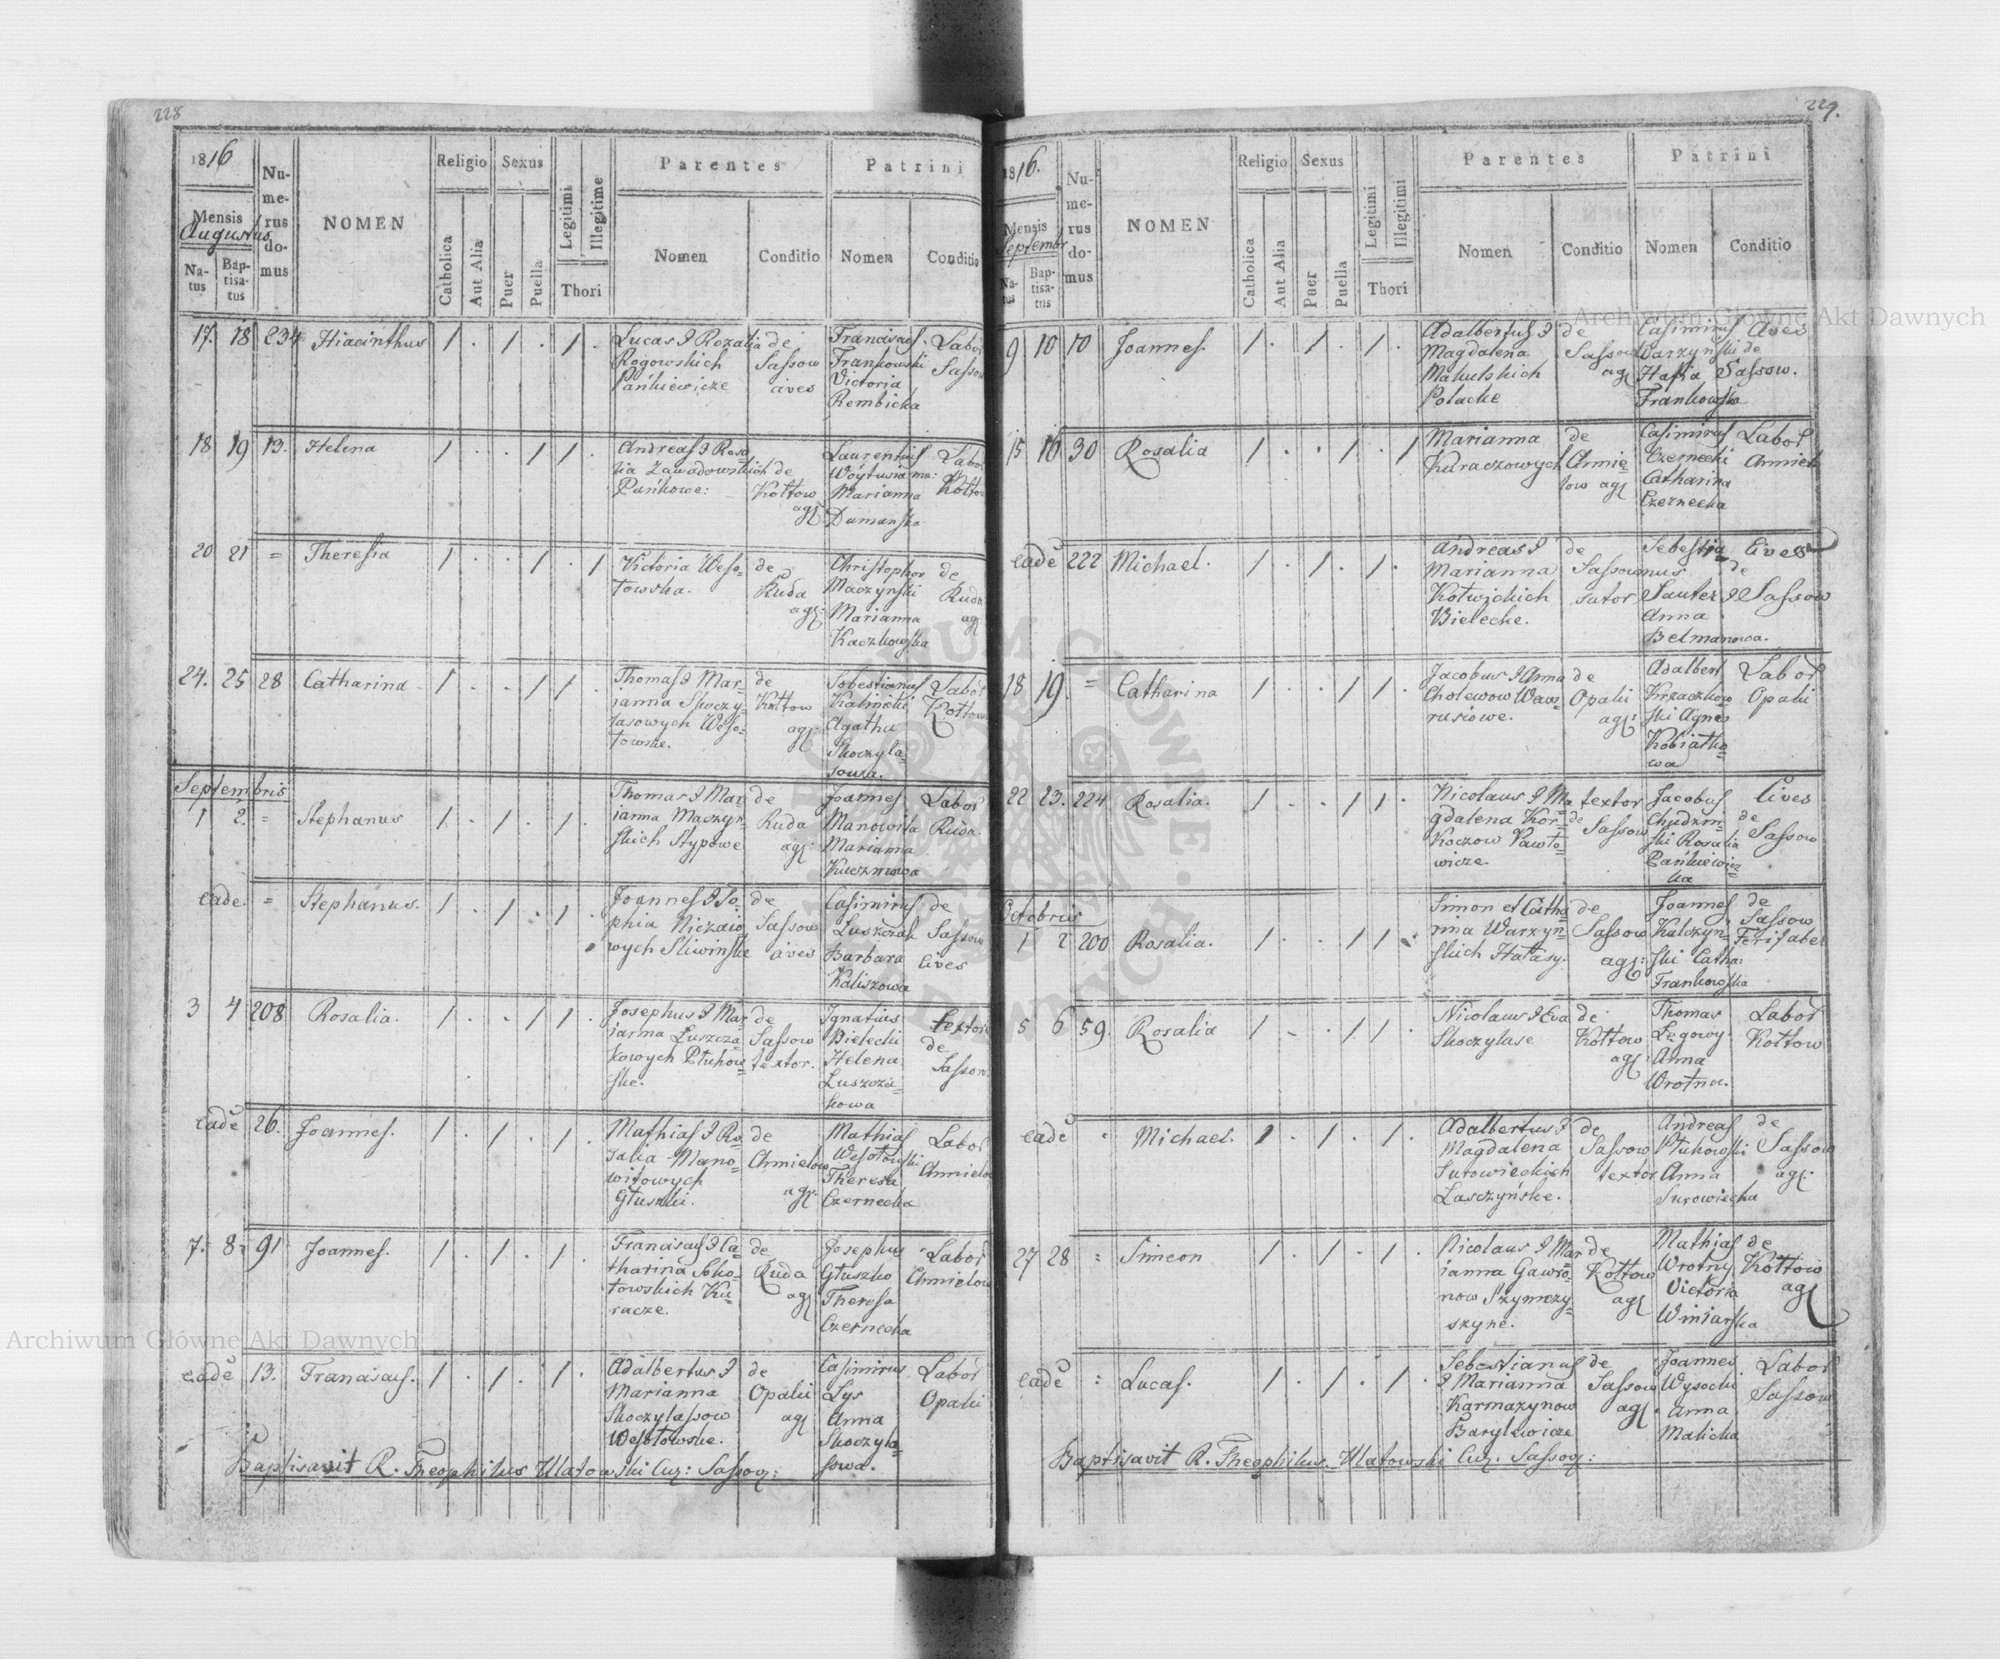 228
1816
Mensis
Augustus
Na-
tus
Bap-
tisa-
tus
Nu-
me-
rus
do-
mus
NOMEN
Religio
Catholica
Aut Alia
Sexus
Puer
Puella
Legitimi
Illegitime
Thori
Parentes
Nomen
Conditio
Patrini
Nomen
Conditio
17. 18 234 Hiacinthus 1 . 1 . 1 .
Lucas & Rozalia
Rogowskich
Pańkiewicze
de
Sassow
cives
Franciscus
Frankowski
Victoria
Rembicka
Labor
Sassow
18 19 13. Helena 1 . . 1 1 .
Andreas & Rosa=
lia Zawadowskich
Pańkowe:
de
Kołtow
agr
Laurentius
Marianna
Dumańska
Labor
Kołtow
20 21 = Theresia 1 . . 1 . 1
Victoria Weso=
łowska.
de
Ruda
agr:
Christophor
Maczyński
Marianna
Kaczkowska
de
Ruda
agr
24. 25 28 Catharina 1 . . 1 1 .
Thomas & Mar=
ianna Skoczy=
lasowych Weso=
łowskie.
de
Kołtow
agr:
Sebestianus
Kalinicki
Agatha
Skoczyla=
sowa.
Labor
Kołtow
Septembris
1 2. = Stephanus 1 . 1 . 1 .
Thomas & Mar=
ianna Maczyń=
skich Stypowe
de
Ruda
agr:
Joannes
Manowita
Marianna
Labor
Ruda.
eade. = Stephanus. 1 . 1 . 1 .
Joannes & So=
phia Niczaio
wych Sliwińskie
de
Sassow
cives
Casimirus
Luszczak
Barbara
Kaliszowa
de
Sassow
Cives
3 4 208 Rosalia. 1 . . 1 1 .
Josephus & Mar=
ianna Luszcza=
kowych Płuhow=
skie.
de
Sassow
textor.
Ignatius
Bielecki
Helena
Luszcza=
kowa
textor
de
Sassow.
eade 26. Joannes. 1 . 1 . 1 .
Mathias & Ro
salia Mano=
witowych
Głuszki.
de
Chmielow
agr:
Mathias
Wesołowski
Theresa
Czernecka
Labor
Chmielow
7. 8. 91 Joannes. 1 . 1 . 1 .
Franciscus & Ca=
tharina Soko=
łowskich Ku=
racze.
de
Ruda
agr
Josephus
Głuszko
Theresa
Czernecka
Labor
Chmielow
eade 13. Franciscus. 1 . 1 . 1 .
Adalbertus &
Marianna
Skoczylassow
Wesołowskie.
de
Opaki
agr
Casimirus
Lys
Anna
Skoczyla=
sowa.
Labor
Opaki
Baptisavit R. Theophilus Ulatowski Cur: Sassov:
229.
1816.
Mensis
Septembr
Na-
tus
Bap-
tisa-
tus
Nu-
me-
rus
do-
mus
NOMEN
Religio
Catholica
Aut Alia
Sexus
Puer
Puella
Legitimi
Illegitimi
Thori
Parentes
Nomen
Conditio
Patrini
Nomen
Conditio
9 10 10 Joannes. 1 . 1 . 1 .
Adalbertus &
Magdalena
Makulskich
Polacke
de
Sassow
agr
Casimirus
Warzynski
Frankowska
Cives
de
Sassow.
15 16 30 Rosalia 1 . . 1 . 1
Marianna
Kuraczowych
de
Chmie=
low agr
Casimirus
Czernecki
Catharina
Czernecka
Labor
Chmiel
eade 222 Michael. 1 . 1 . 1 .
Andreas &
Marianna
Kotwickich
Bielecke.
de
Sassow
sutor
Sebestia
nus
Sauter &
Anna
Belmanowa.
Cives
de
Sassow
18 19. = Catharina 1 . . 1 1 .
Jacobus & Anna
Cholewow Waw=
rusiowe.
de
Opaki
agr:
Adalbert
Krzaczkow
ski Agnes
Kobiałko=
wa
Labor
Opaki
22 23. 224 Rosalia. 1 . . 1 1 .
Nicolaus & Ma
gdalena Kor=
Koczow Pawło=
wicze.
textor
de
Sassow
Jacobus
ski Rosalia
Pańkiewicz=
ka
Cives
de
Sassow
Octobris
1 2 200 Rosalia. 1 . . 1 1 .
Simon et Catha
rina Warzyn=
skich Hałasy.
de
Sassow
agr:
Joannes
Kalczyn=
ski Catha:
Frankowska
de
Sassow
5 6 59. Rosalia 1 . . 1 1 .
Nicolaus & Eva
Skoczylase
de
Kołtow
agr
Thomas
Łęgowy
Anna
Wrotna.
Labor
Kołtow
eade Michael. 1 . 1 . 1 .
Adalbertus &
Magdalena
Surowieckich
Laszczyńskie.
de
Sassow
textor
Andreas
Płuhowski
Anna
Surowiecka
de
Sassow
agr.
27 28 = Simeon 1 . 1 . 1 .
Nicolaus & Mar
ianna Gawro=
now Szymczy=
szyne.
de
Kołtow
agr
Mathias
Wrotny
Victoria
Winiarska
de
Kołtow
agr
eade = Lucas. 1 . 1 . 1 .
Sebestianus
& Marianna
Karmazynow
Barylewicze
de
Sassow
agr.
Joannes
Wysocki
Anna
Malicka
Labor
Sassow
Baptisavit R. Theophilus Ulatowski Cur. Sassov:
Archiwum Główne Akt Dawnych
Archiwum Główne Akt Dawnych
ARCHIWUM GŁÓWNE AKT DAWNYCH